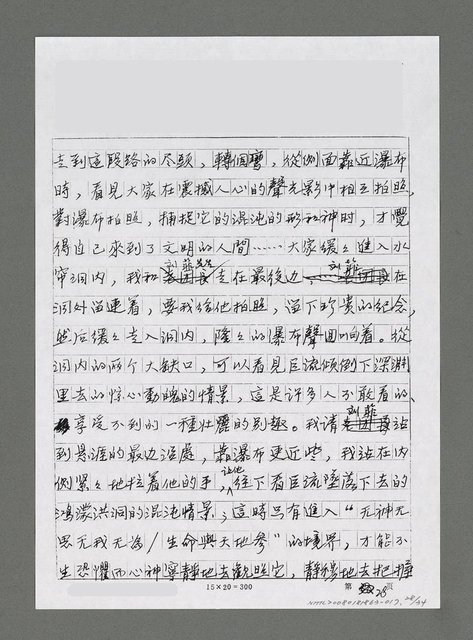 走到這段路的尽頭，轉個彎，從側面靠近瀑布
時，看見大家在震撼人心的聲光影中相互拍照，
對瀑布拍照，捕捉它的混沌的形和神时，才覺
得自己來到了文明的人間……大家緩々進入水
帘洞内，我和刘菲先生走在最後边，刘菲在
洞外留連着，要我给他拍照，留下珍贵的纪念，
然后緩々走入洞内，隆々的瀑布聲回响着。從
洞内的兩个大缺口，可以看見巨流傾倒下深淵
里去的惊心動魄的情景，這是许多人不敢看的、
享受不到的一種壮麗的别趣。我请刘菲站
到悬涯的最边沿處，靠瀑布更近些，我站在内
侧紧々地拉着他的手，让他往下看巨流墜落下去的
鸿濛洪洞的混沌情景，這時只有進入“无神无
思无我无為/生命與天地參”的境界，才能不
生恐懼而心神寧静地去觀照它，静穆地去把握
15×20=300
第 28 頁
NMTL20080181863-017, 28/34